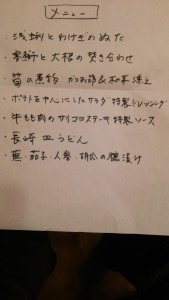 メニュー
・浅蜊とわけぎのぬた
・大根の焚き合わせ
・筍の煮物
・ポテトを中心にしたサラダ 特製ドレッシング
・牛もも肉のサイコロステーキ 特製ソース
・長崎皿うどん
・蕪・茄子・人参・胡瓜の糠漬け